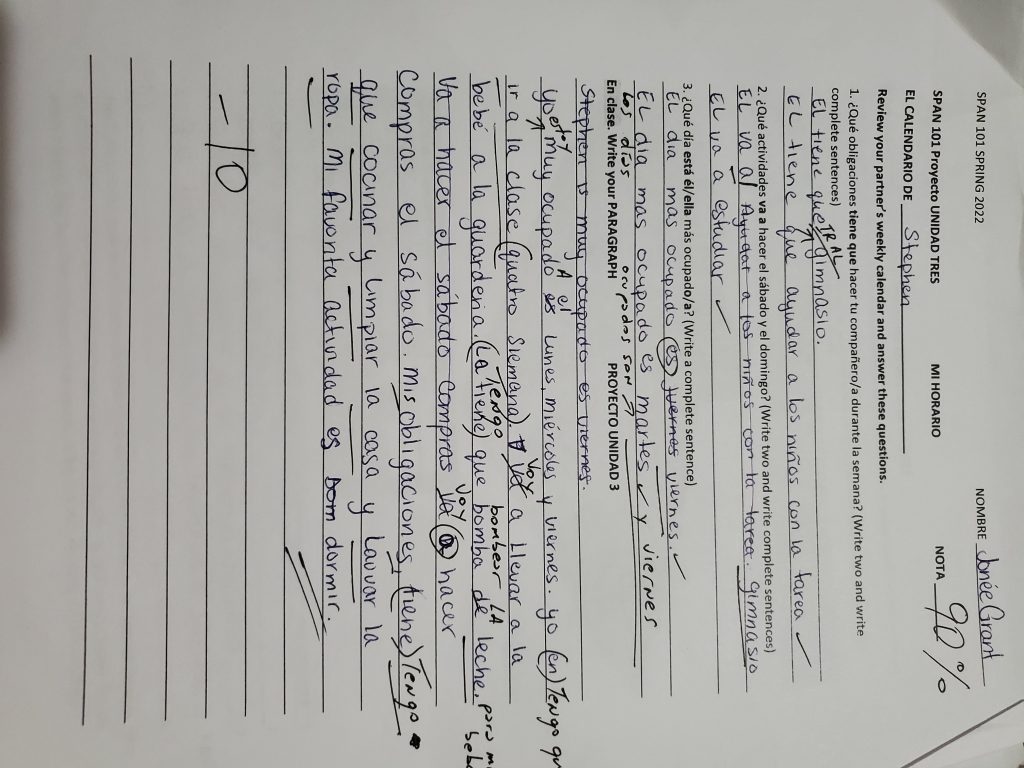 SPAN 101 SPRING 2022 NOMBRE Jonée Grant
SPAN 101 Proyecto UNIDAD TRES MI HORARIO NOTA 90%
EL CALENDARIO DE Stephen
Review your partner's weekly calendar and answer these questions.
1. ¿Qué obligaciones tiene que hacer tu compañero/a durante la semana? (Write two and write
complete sentences)
IR AL
EL tiene que gimnasio.
EL tiene que ayudar a los niños con la tarea
2. ¿Qué actividades va a hacer el sábado y el domingo? (Write two and write complete sentences)
EL va al Ayudar a los niños con la tarea. gimnasio
EL va a estudiar
3. ¿Qué día está él/ella más ocupado/a? (Write a complete sentence)
EL dia mas ocupado es viernes.
EL dia mas ocupado es martes y viernes
Los días ocupados son
En clase. Write your PARAGRAPH PROYECTO UNIDAD 3
Stephen is muy ocupado es viernes.
estoy A el
yo muy ocupado es lunes, miércoles y viernes. yo (en) Tengo qu
ir a la clase (quatro siemana). voy a llevar a la
bebé a la guarderia. (La tiene) que bomba de leche. para mi bebe
TENGO bombear LA
Va a hacer el sábado compras voy a hacer
compras el sábado. Mis obligaciones, (tiene) TENGO
que cocinar y limpiar la casa y lauvar la
ropa. Mi favorita actividad es dormir.
-10